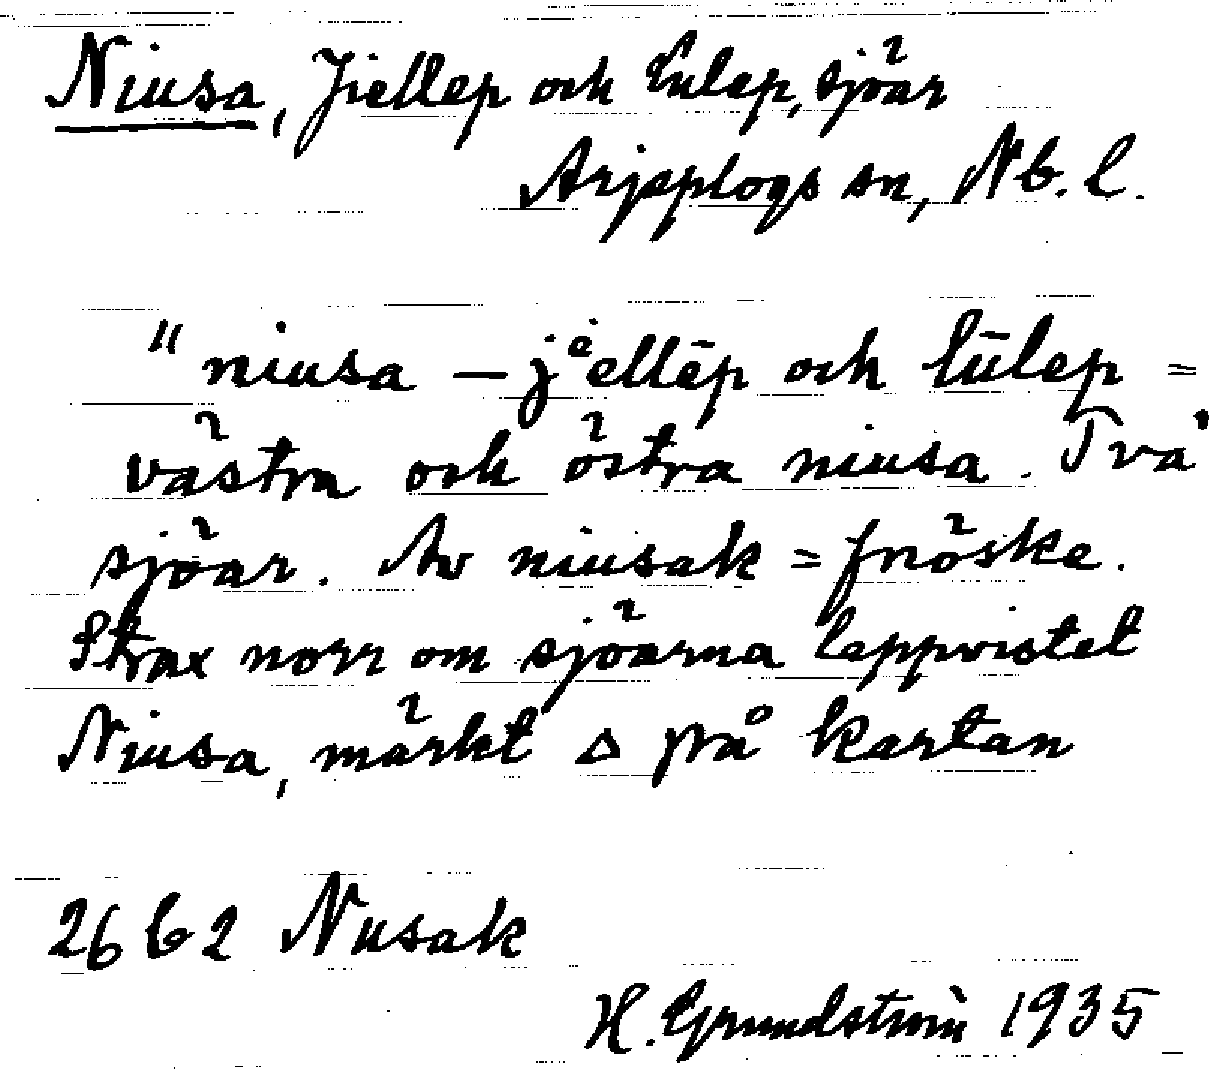 Niusa, Jiellep och Lulep, sjöar
Arjeplogs sn, Nb. l.
"niusa — jͤellēp och lūlep =
västra och östra niusa. Två
sjöar. Av niusak = fnöske.
Strax norr om sjöarna lappvistet
Niusa, märkt △ på kartan
26 b 2 Nusak
H. Grundström 1935